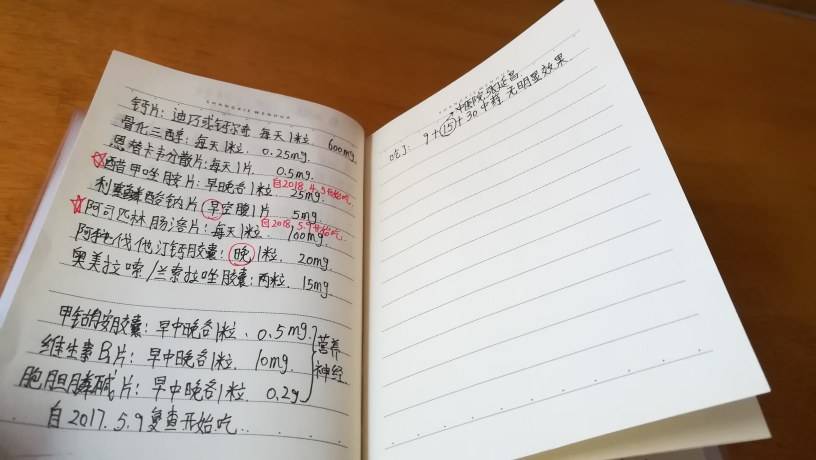 钙片: 迪巧或钙尔奇 每天1粒. 600mg.
骨化三醇: 每天1粒. 0.25mg.
恩替卡韦分散片: 每天1片. 0.5mg.
☆醋甲唑胺片: 早晚各1粒 25mg.
自2018.4.5开始吃.
利塞膦酸钠片(早空腹)1片 5mg.
☆阿司匹林肠溶片: 每天1粒. 100mg.
自2018.5.9开始吃.
阿托伐他汀钙胶囊: 晚1粒. 20mg.
奥美拉唑/兰索拉唑胶囊: 两粒. 15mg.
甲钴胺胶囊: 早中晚各1粒. 0.5mg.
维生素B₁片: 早中晚各1粒. 10mg.
胞胆膦碱片: 早中晚各1粒. 0.2g
营养
神经
自2017.5.9复查开始吃.
中医院
吃了: 9+15+30中药 无明显效果